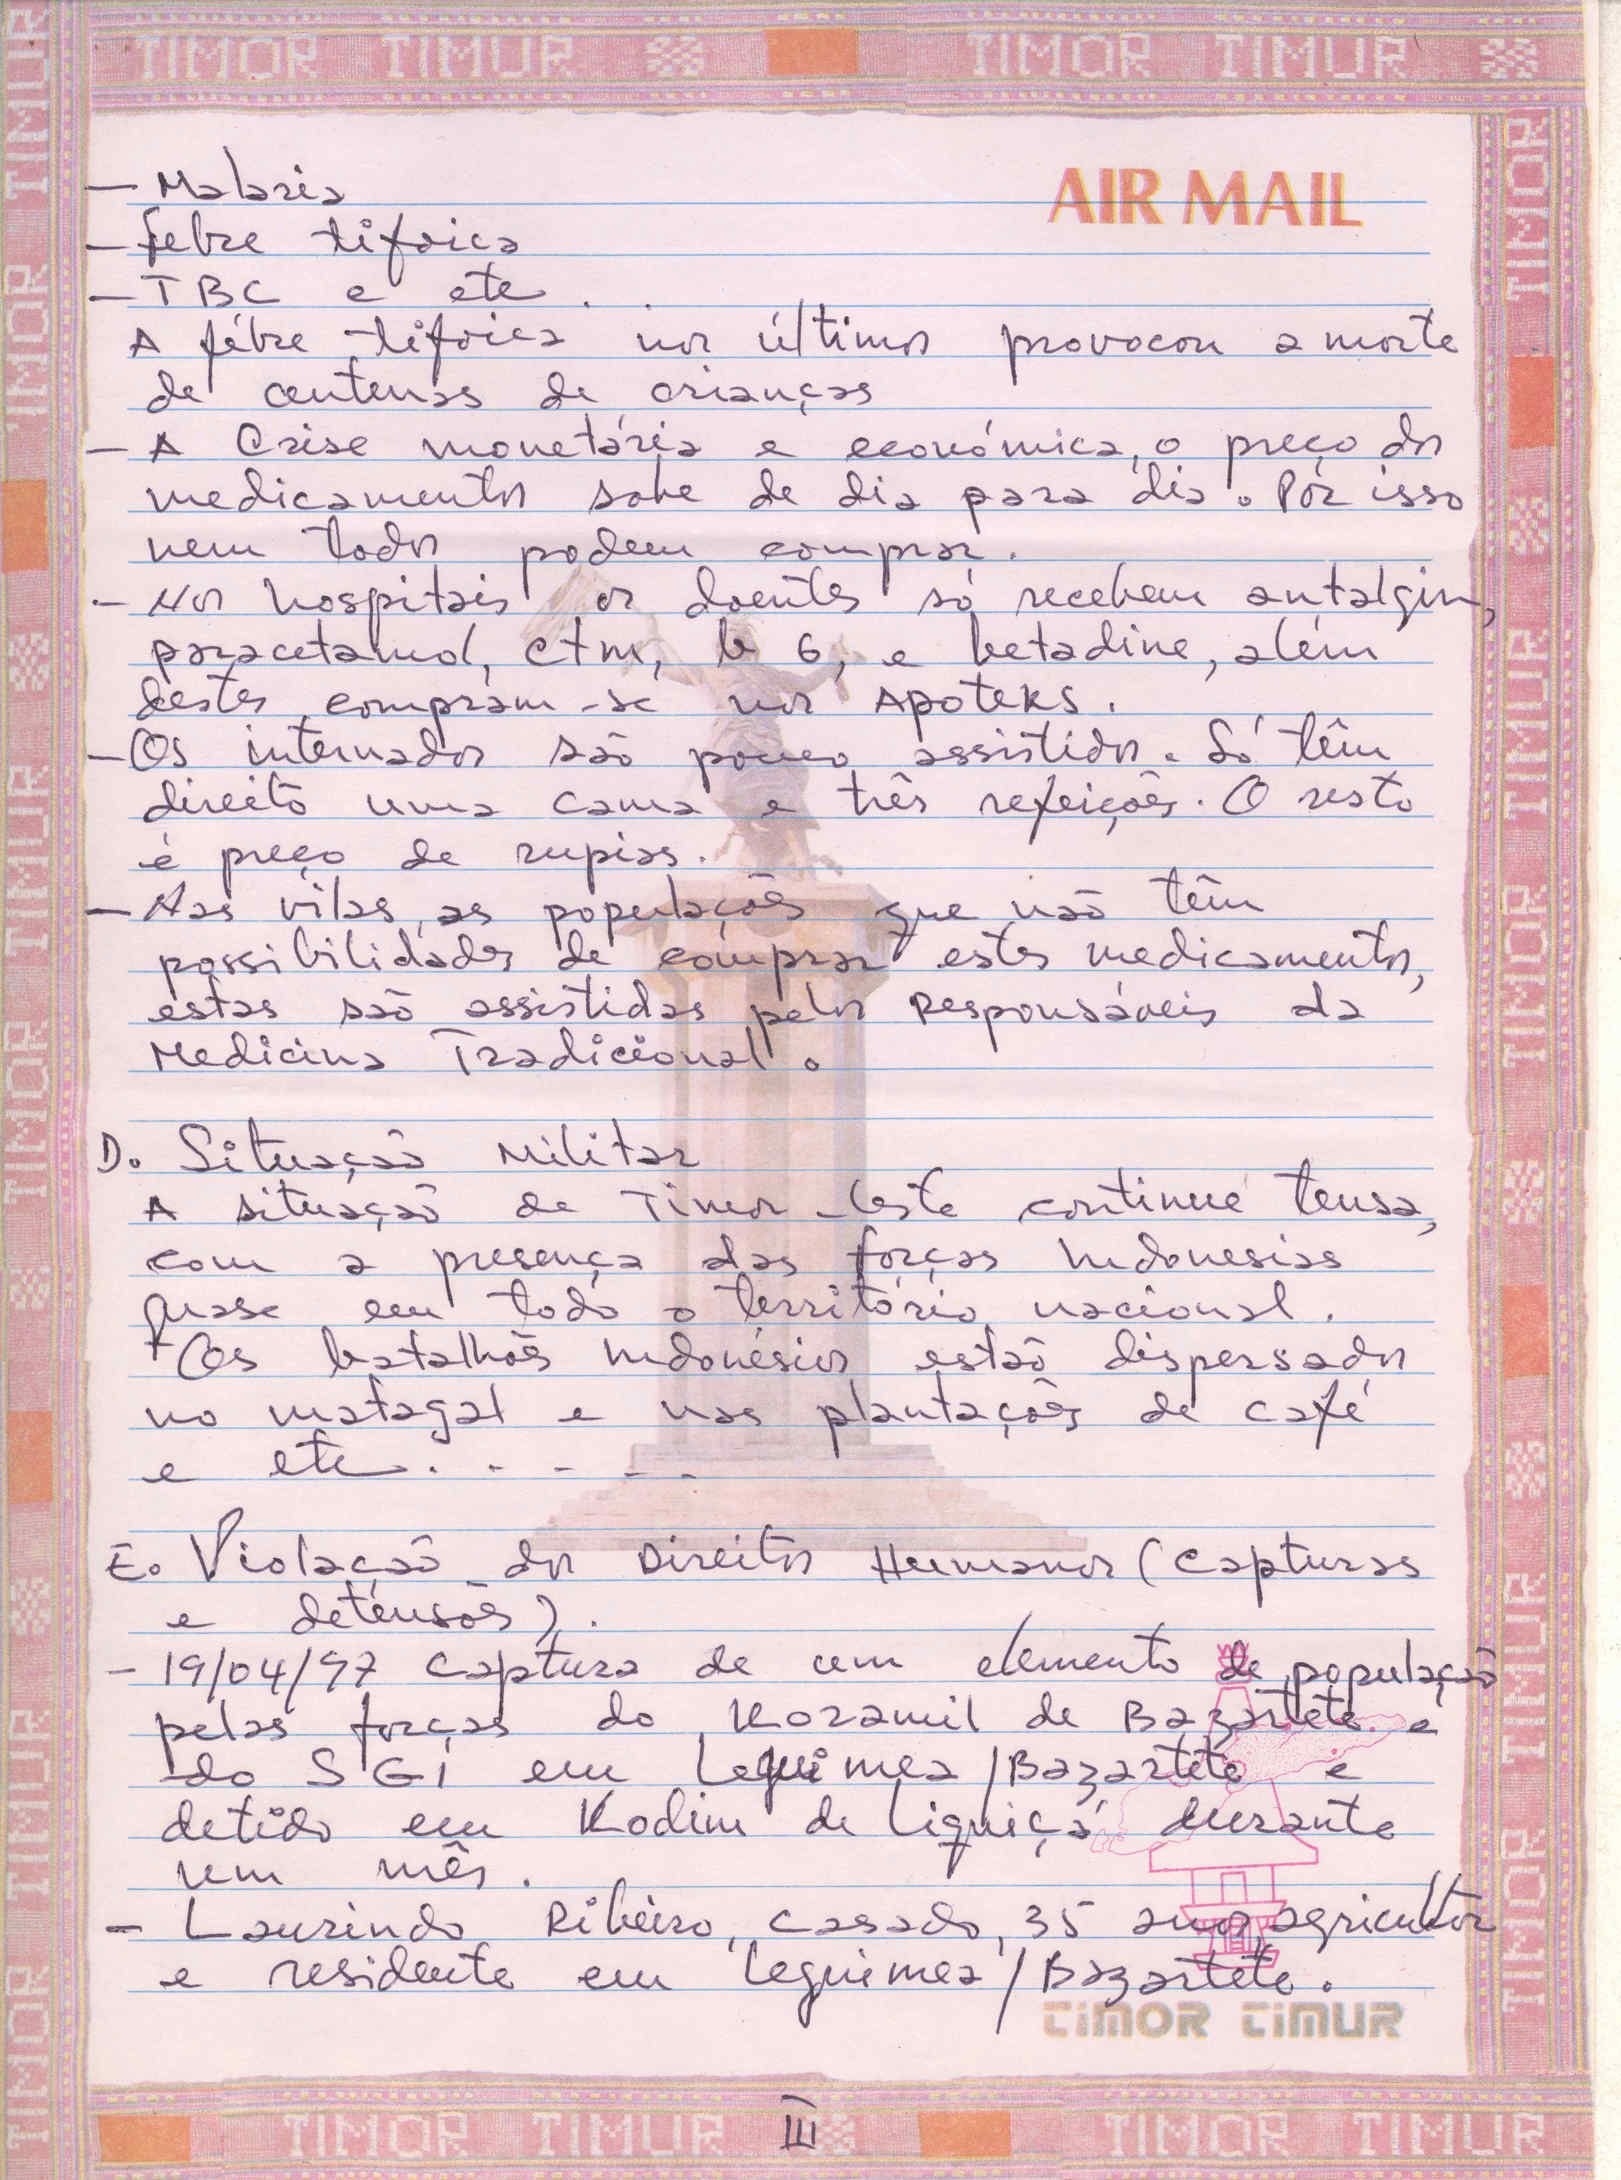 TIMOR TIMUR TIMOR TIMUR
AIR MAIL
- Malaria
- febre tifoica
- TBC e etc.
A fébre tifoica nos últimos provocou a morte
de centenas de crianças
- A Crise monetária e económica, o preço dos
medicamentos sobe de dia para dia. Pór isso
nem todos podem comprar.
- Nos hospitais os doentes só recebem antalgin,
paracetamol, ctm, b 6, e betadine, além
destes compram-se nos Apoteks.
- Os internados são pouco assistidos. Só têm
direito uma cama e três refeições. O resto
é preço de rupias.
- Nas vilas, as populações que não têm
possibilidades de comprar estes medicamentos,
estas são assistidas pelos Responsáveis da
Medicina Tradicional.
D. Situação Militar
A situação de Timor-Leste continue tensa,
com a presença das forças Indonesias
quase em todo o território nacional.
+ Os batalhões Indonésios estão dispersados
no matagal e nas plantações de café
e etc. - - - -
E. Violação dos Direitos Humanos (Capturas
e detensões).
- 19/04/97 Captura de um elemento de população
pelas forças do Koramil de Bazartete e
do SGI em Lequimea/Bazartete e
detido em Kodim de Liquiçá durante
um mês.
- Laurindo Ribeiro, casado, 35 anos, agricultor
e residente em Lequimea/Bazartete.
TIMOR TIMUR
III
TIMOR TIMUR TIMOR TIMUR